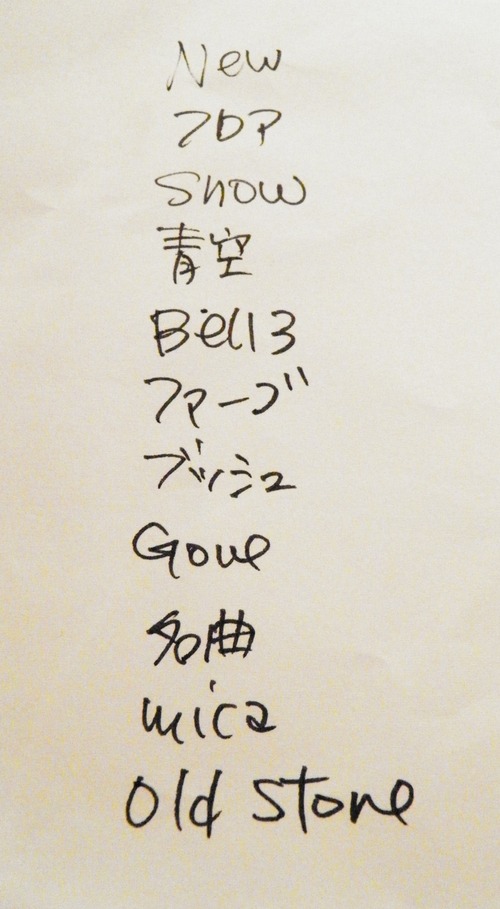 New
フロア
Snow
青空
Bell3
ファーブ
ブッシュ
Gone
名曲
mica
Old Stone